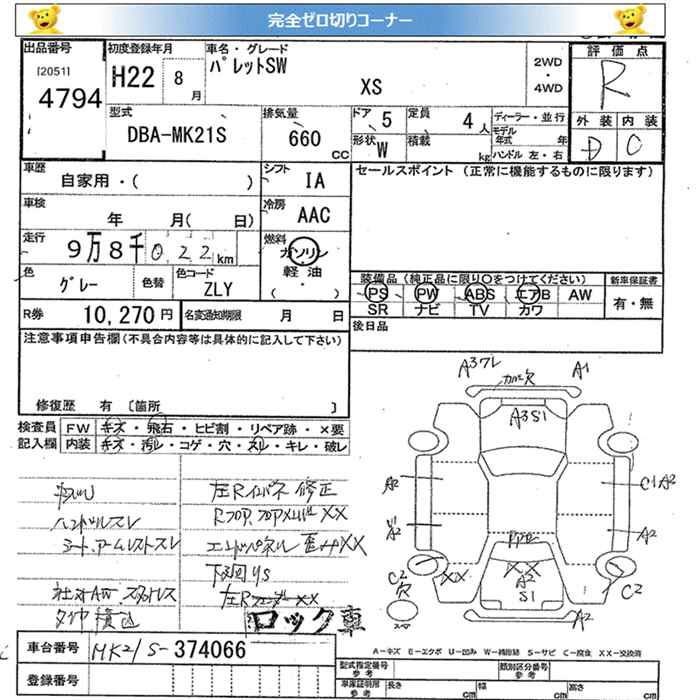 完全ゼロ切りコーナー
出品番号
[2051]
4794
初度登録年月
H22 8 月
車名・グレード
パレットSW
XS
2WD
・
4WD
評価点
R
外装 内装
D C
型式
DBA-MK21S
排気量
660 CC
ドア 5
形状 W
定員 4 人
積載 kg
ディーラー・並行
モデル年式 年
ハンドル 左・右
車歴
自家用・( )
シフト
IA
車検
年 月( 日)
冷房
AAC
走行
9万8千022km
燃料
ガソリン
・
軽油
( ・ )
色
グレー
色替
色コード
ZLY
R券 10,270 円
名変通知期限 月 日
セールスポイント (正常に機能するものに限ります)
装備品 (純正品に限り○をつけてください)
新車保証書
PS PW ABS エアB AW
SR ナビ TV カワ
有・無
後日品
注意事項申告欄(不具合内容等は具体的に記入して下さい)
修復歴 有 〔箇所 〕
検査員記入欄
FW キズ・飛石・ヒビ割・リペア跡・×要
内装 キズ・汚レ・コゲ・穴・スレ・キレ・破レ
ハンドルスレ
シート、アームレストスレ
社外AW、スタッドレス
タイヤ積込
左Rインパネ修正
Rフロア、フロアメンバーXX
エンドパネル歪みXX
下廻りS
ロック車
A3ワレ
A1
カバー欠
A3S1
A2
A2
C1A2
A2
XX
XX
A2
S1
C2
欠
C2
A2
スペア
車台番号 MK21S-374066
登録番号
A-キズ E-エクボ U-凹み W-補修跡 S-サビ C-腐食 XX-交換済
型式指定番号
参考
類別区分番号
参考
車庫証明用
参考
長さ cm
幅 cm
高さ cm